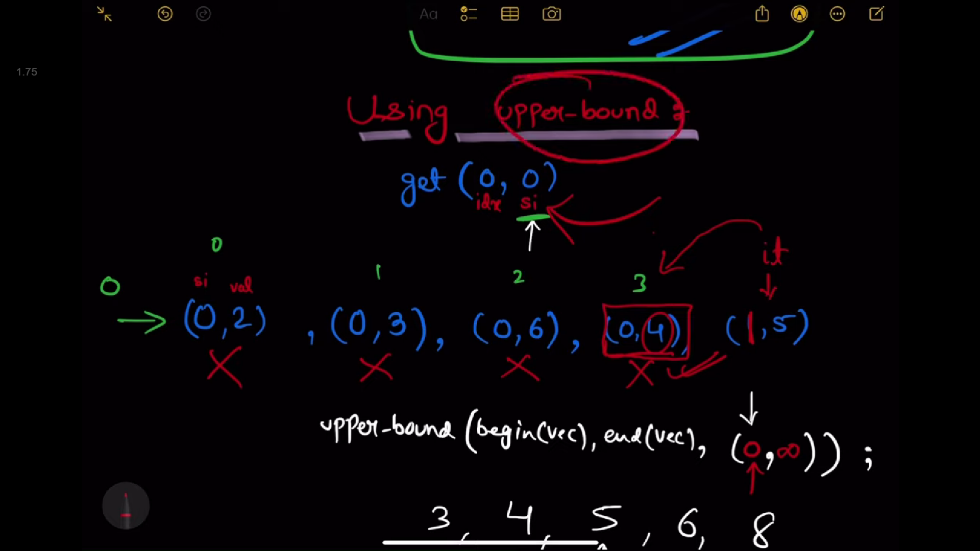 Aa
1.75
Using upper-bound :
get (0, 0)
idx si
0 1 2 3 it
0 si val
→ (0,2) , (0,3), (0,6), (0,4), (1,5)
X X X X ✓
upper-bound (begin(vec), end(vec), (0,∞)) ;
3, 4, 5, 6, 8